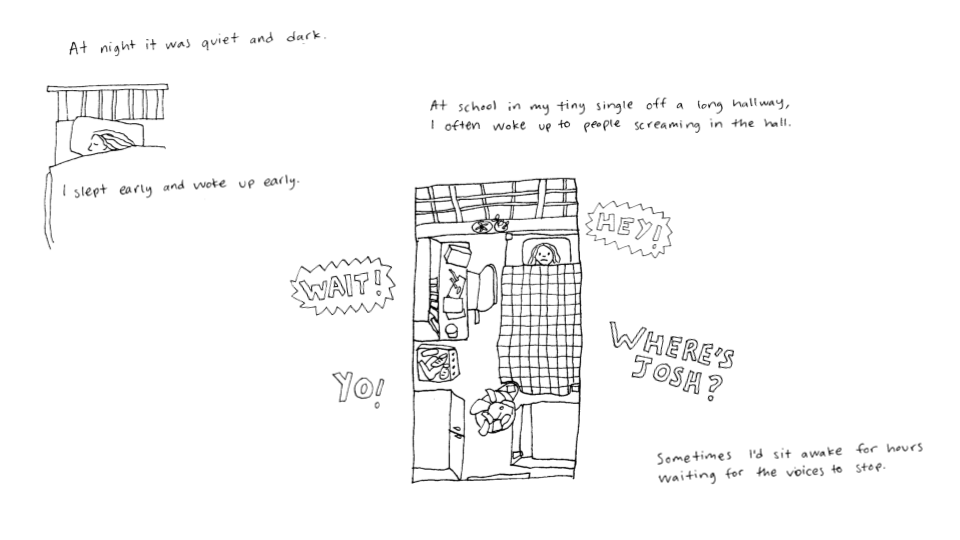 At night it was quiet and dark.
I slept early and woke up early.
At school in my tiny single off a long hallway,
I often woke up to people screaming in the hall.
HEY!
WAIT!
WHERE'S
JOSH?
YO!
Sometimes I'd sit awake for hours
waiting for the voices to stop.